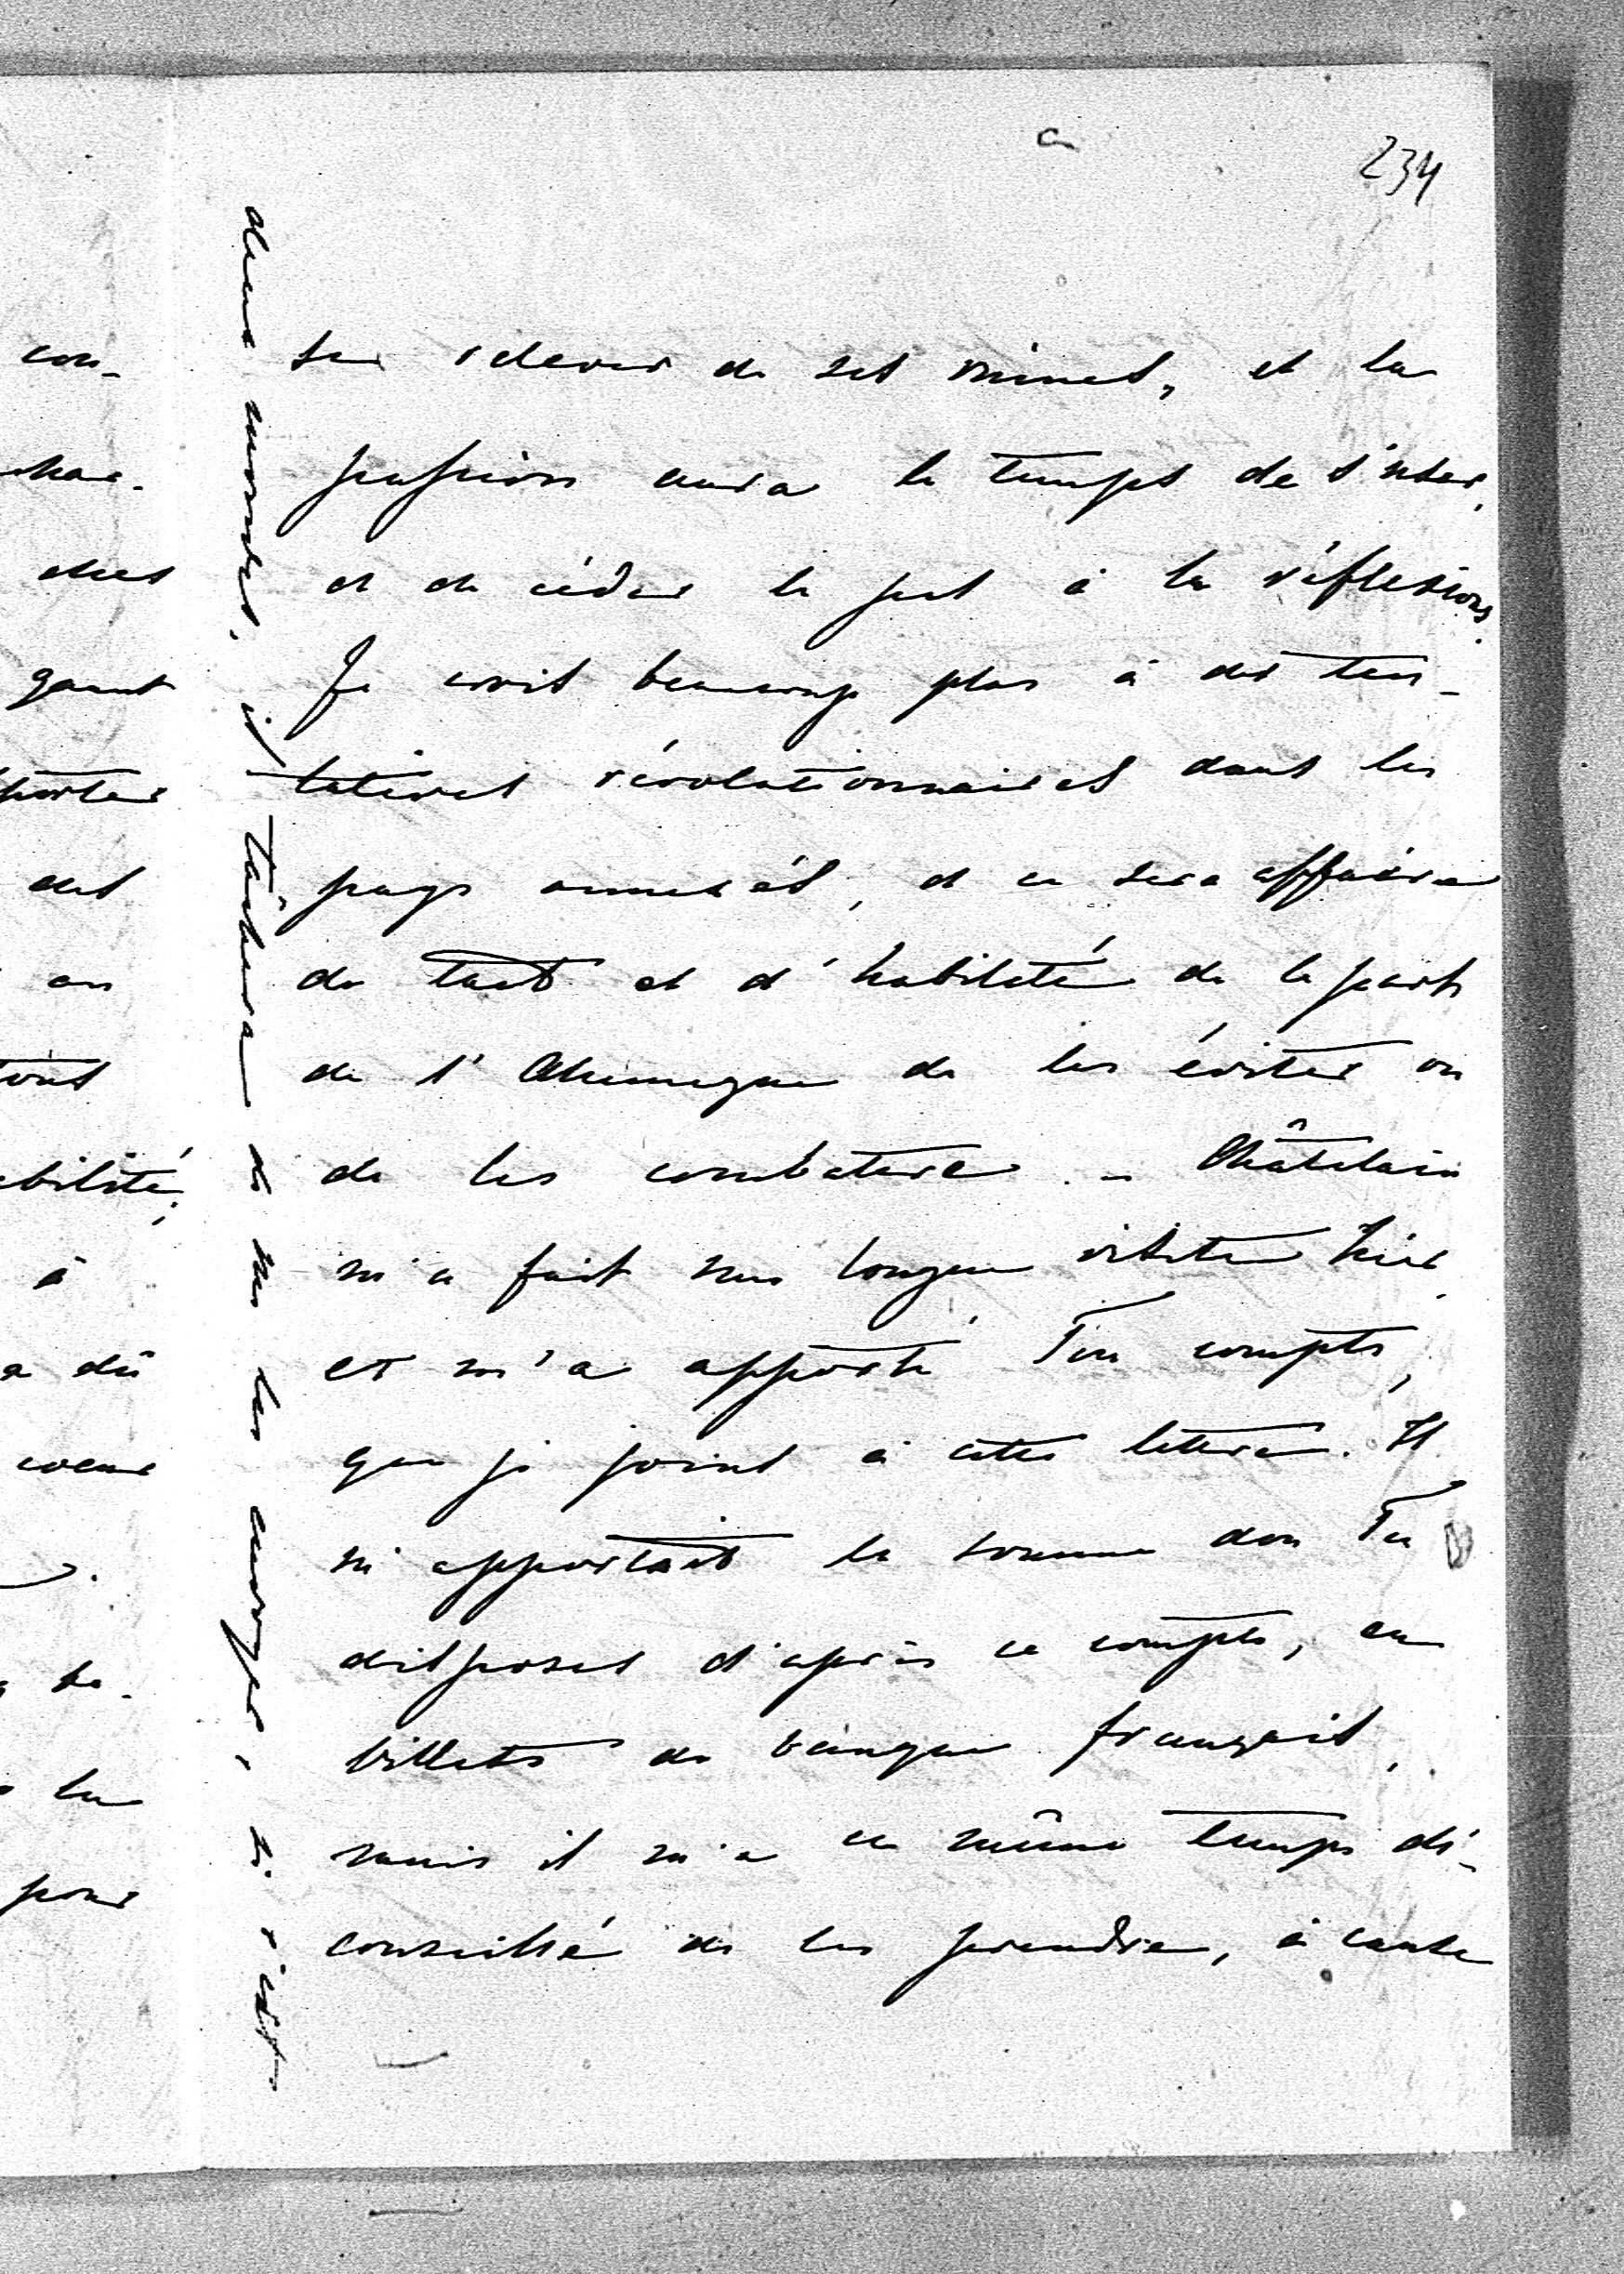 234
se relever de ses ruines, et la
passion aura le temps de s'user,
et de céder le pas à la réflexion.
Je crois beaucoup plus à des ten-
tatives révolutionnaires dans les
pays annexés, et ce sera affaire
de tact et d'habileté de la part
de l'Allemagne de les éviter ou
de les combattre. – Châtelain
m'a fait une longue visite hier,
et m'a apporté Ton compte,
que je joins à cette lettre. Il
m'apportait la somme don Tu
disposes d'après ce compte, en
billets de banque français,
mais il m'a en même temps dé-
conseillé de les prendre, à cause
deux mondes, il tâchera de ne les
con-
des
porter
des
en
tout
abilité,
à
a dû
coeur
la
pour